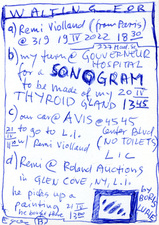 WAITING FOR
a) Remi Violland (from Paris)
@ 319 19 IV 2022 18 30
b) my turn @ GOUVERNEUR
HOSPITAL
for a SONOGRAM
to be made of my 20 IV
THYROID GLAND 13 45
c) our car @ AVIS @ 45 45
21 to go to L.I. Center Blvd
IV w/ Remi Violland (NO TOILETS)
L.I.C
d) Remi @ Roland Auctions
in GLEN COVE, N.Y. L.I.
he picks up a
painting 21 IV
by BORIS
LURIE